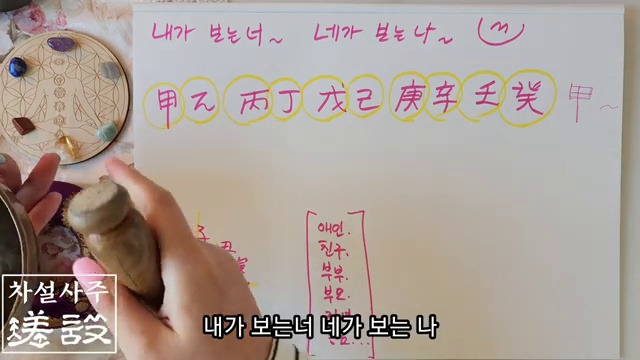 내가 보는너~ 네가 보는나~
甲乙 丙丁 戊己 庚辛 壬癸 甲~
애인.
친구.
부부.
부모.
차설사주
내가 보는너 네가 보는 나